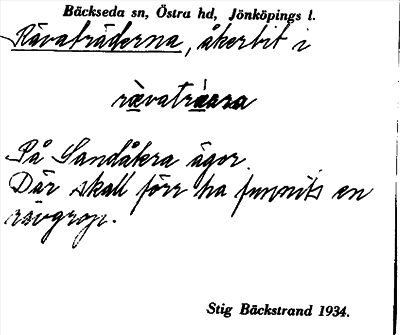 Bäckseda sn, Östra hd, Jönköpings l.
Rävaträderna, åkerbit i
rävaträara
På Sandåkra ägor.
Där skall förr ha funnits en
rävgrop.
Stig Bäckstrand 1934.